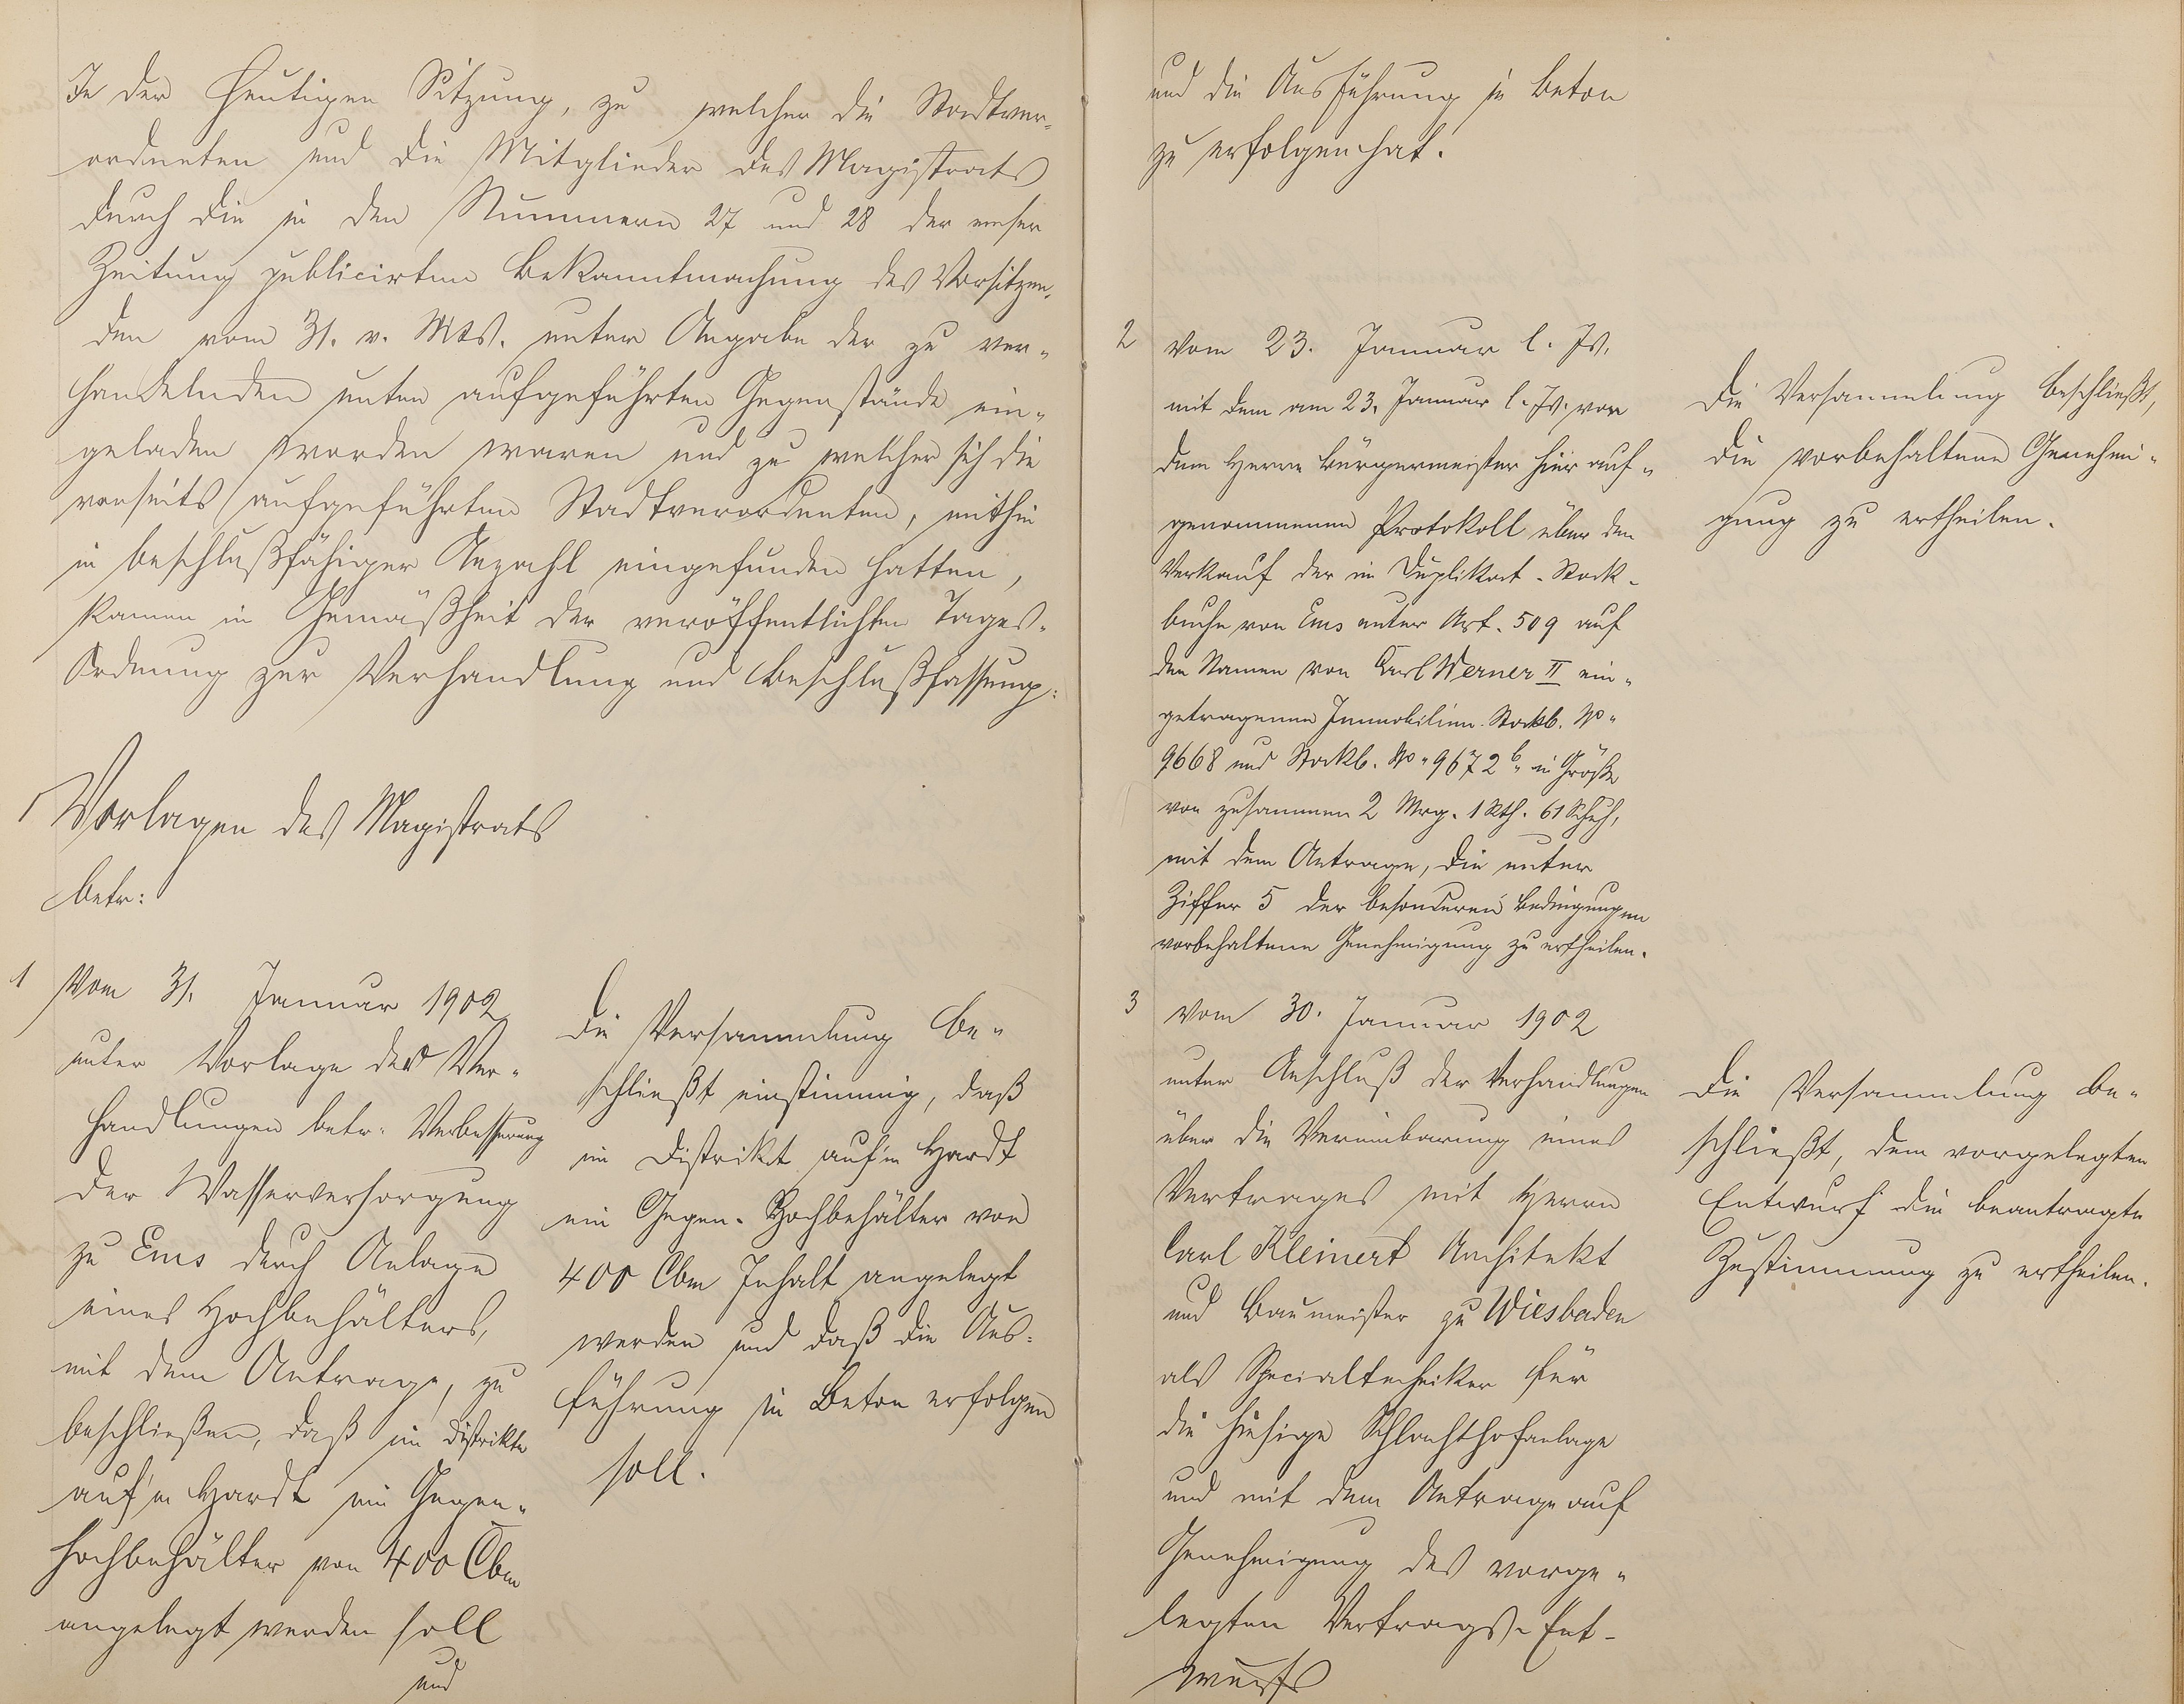 In der heutigen Sitzung, zu welcher die Stadtver-
ordneten und die Mitglieder des Magistrats
durch die in den Nummern 27 und 28 der emser
Zeitung publicirten Bekanntmachung des Vorsitzen-
den vom 31. v. Mts. unter Angabe der zu ver-
handelnden unten aufgeführten Gegenstände ein-
geladen worden waren und zu welcher sich die
vorseits aufgeführten Stadtverordneten, mithin
in beschlußfähiger Anzahl eingefunden hatten,
kamen in Gemäßheit der veröffentlichten Tages-
Ordnung zur Verhandlung und Beschlußfassung:
Vorlagen des Magistrats
betr:
1 Vom 31. Januar 1902
unter Vorlage der Ver-
handlungen betr. Verbesserung
der Wasserversorgung
zu Ems durch Anlage
eines Hochbehälters,
mit dem Antrage, zu
beschließen, daß im Distrikte
auf'm Hardt ein Gegen-
hochbehälter von 400 Cbm
angelegt werden soll
und
Die Versammlung be-
schließt einstimmig, daß
im Distrikt auf'm Hardt
ein Gegen-Hochbehälter von
400 Cbm Inhalt angelegt
werden und daß die Aus-
führung in Beton erfolgen
soll.
und die Ausführung in Beton
zu erfolgen hat.
2 Vom 23. Januar l. Js.
mit dem am 23. Januar l. Js. von
dem Herrn Bürgermeister hier auf-
genommenen Protokoll über den
Verkauf der im Duplikat-Stock-
buche von Ems unter Art. 509 auf
den Namen von Carl Werner II ein-
getragenen Immobilien Stockb. No
9668 und Stockb. No 9672 b in Größe
von zusammen 2 Mrg. 1 Rth. 61 Schuh,
mit dem Antrage, die unter
Ziffer 5 der besonderen Bedingungen
vorbehaltene Genehmigung zu ertheilen.
Die Versammlung beschließt,
die vorbehaltene Genehmi-
gung zu ertheilen.
3 Vom 30. Januar 1902
unter Anschluß der Verhandlungen
über die Vereinbarung eines
Vertrages mit Herrn
Carl Kleinert Architekt
und Baumeister zu Wiesbaden
als Specialtechniker für
die hiesige Schlachthofanlage
und mit dem Antrage auf
Genehmigung des vorge-
legten Vertrags-Ent-
wurfs
Die Versammlung be-
schließt, dem vorgelegten
Entwurf die beantragte
Zustimmung zu ertheilen.